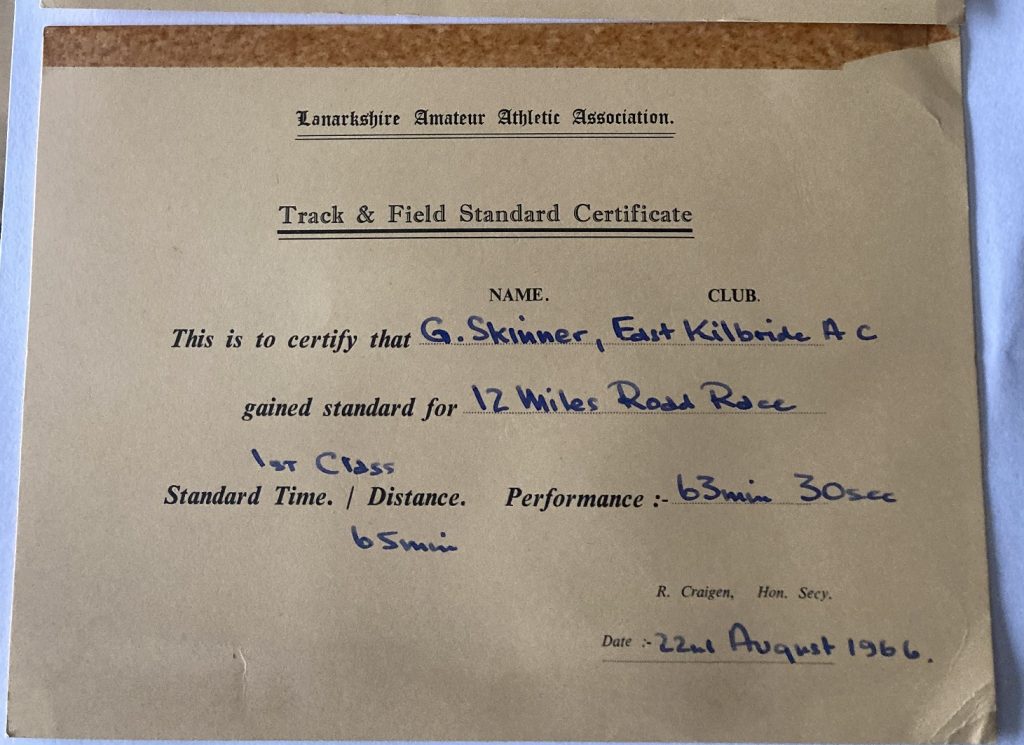 Lanarkshire Amateur Athletic Association.
Track & Field Standard Certificate
NAME. CLUB.
This is to certify that G. Skinner, East Kilbride A C
gained standard for 12 Miles Road Race
1st Class
Standard Time. / Distance. Performance :- 63min 30sec
65min
R. Craigen, Hon. Secy.
Date :- 22nd August 1966.